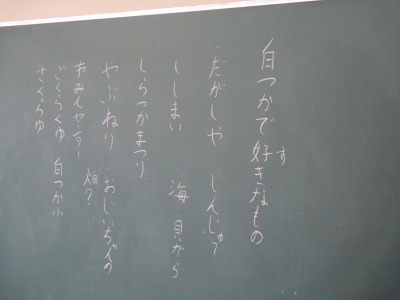 白つかで好きなもの
す
だがしや しんじゅう
ししまい 海 貝がら
しらつかまつり
やぶねり おじいちゃんの
畑?
おみんセンター
ごくらくゆ 白つか小
さくらゆ